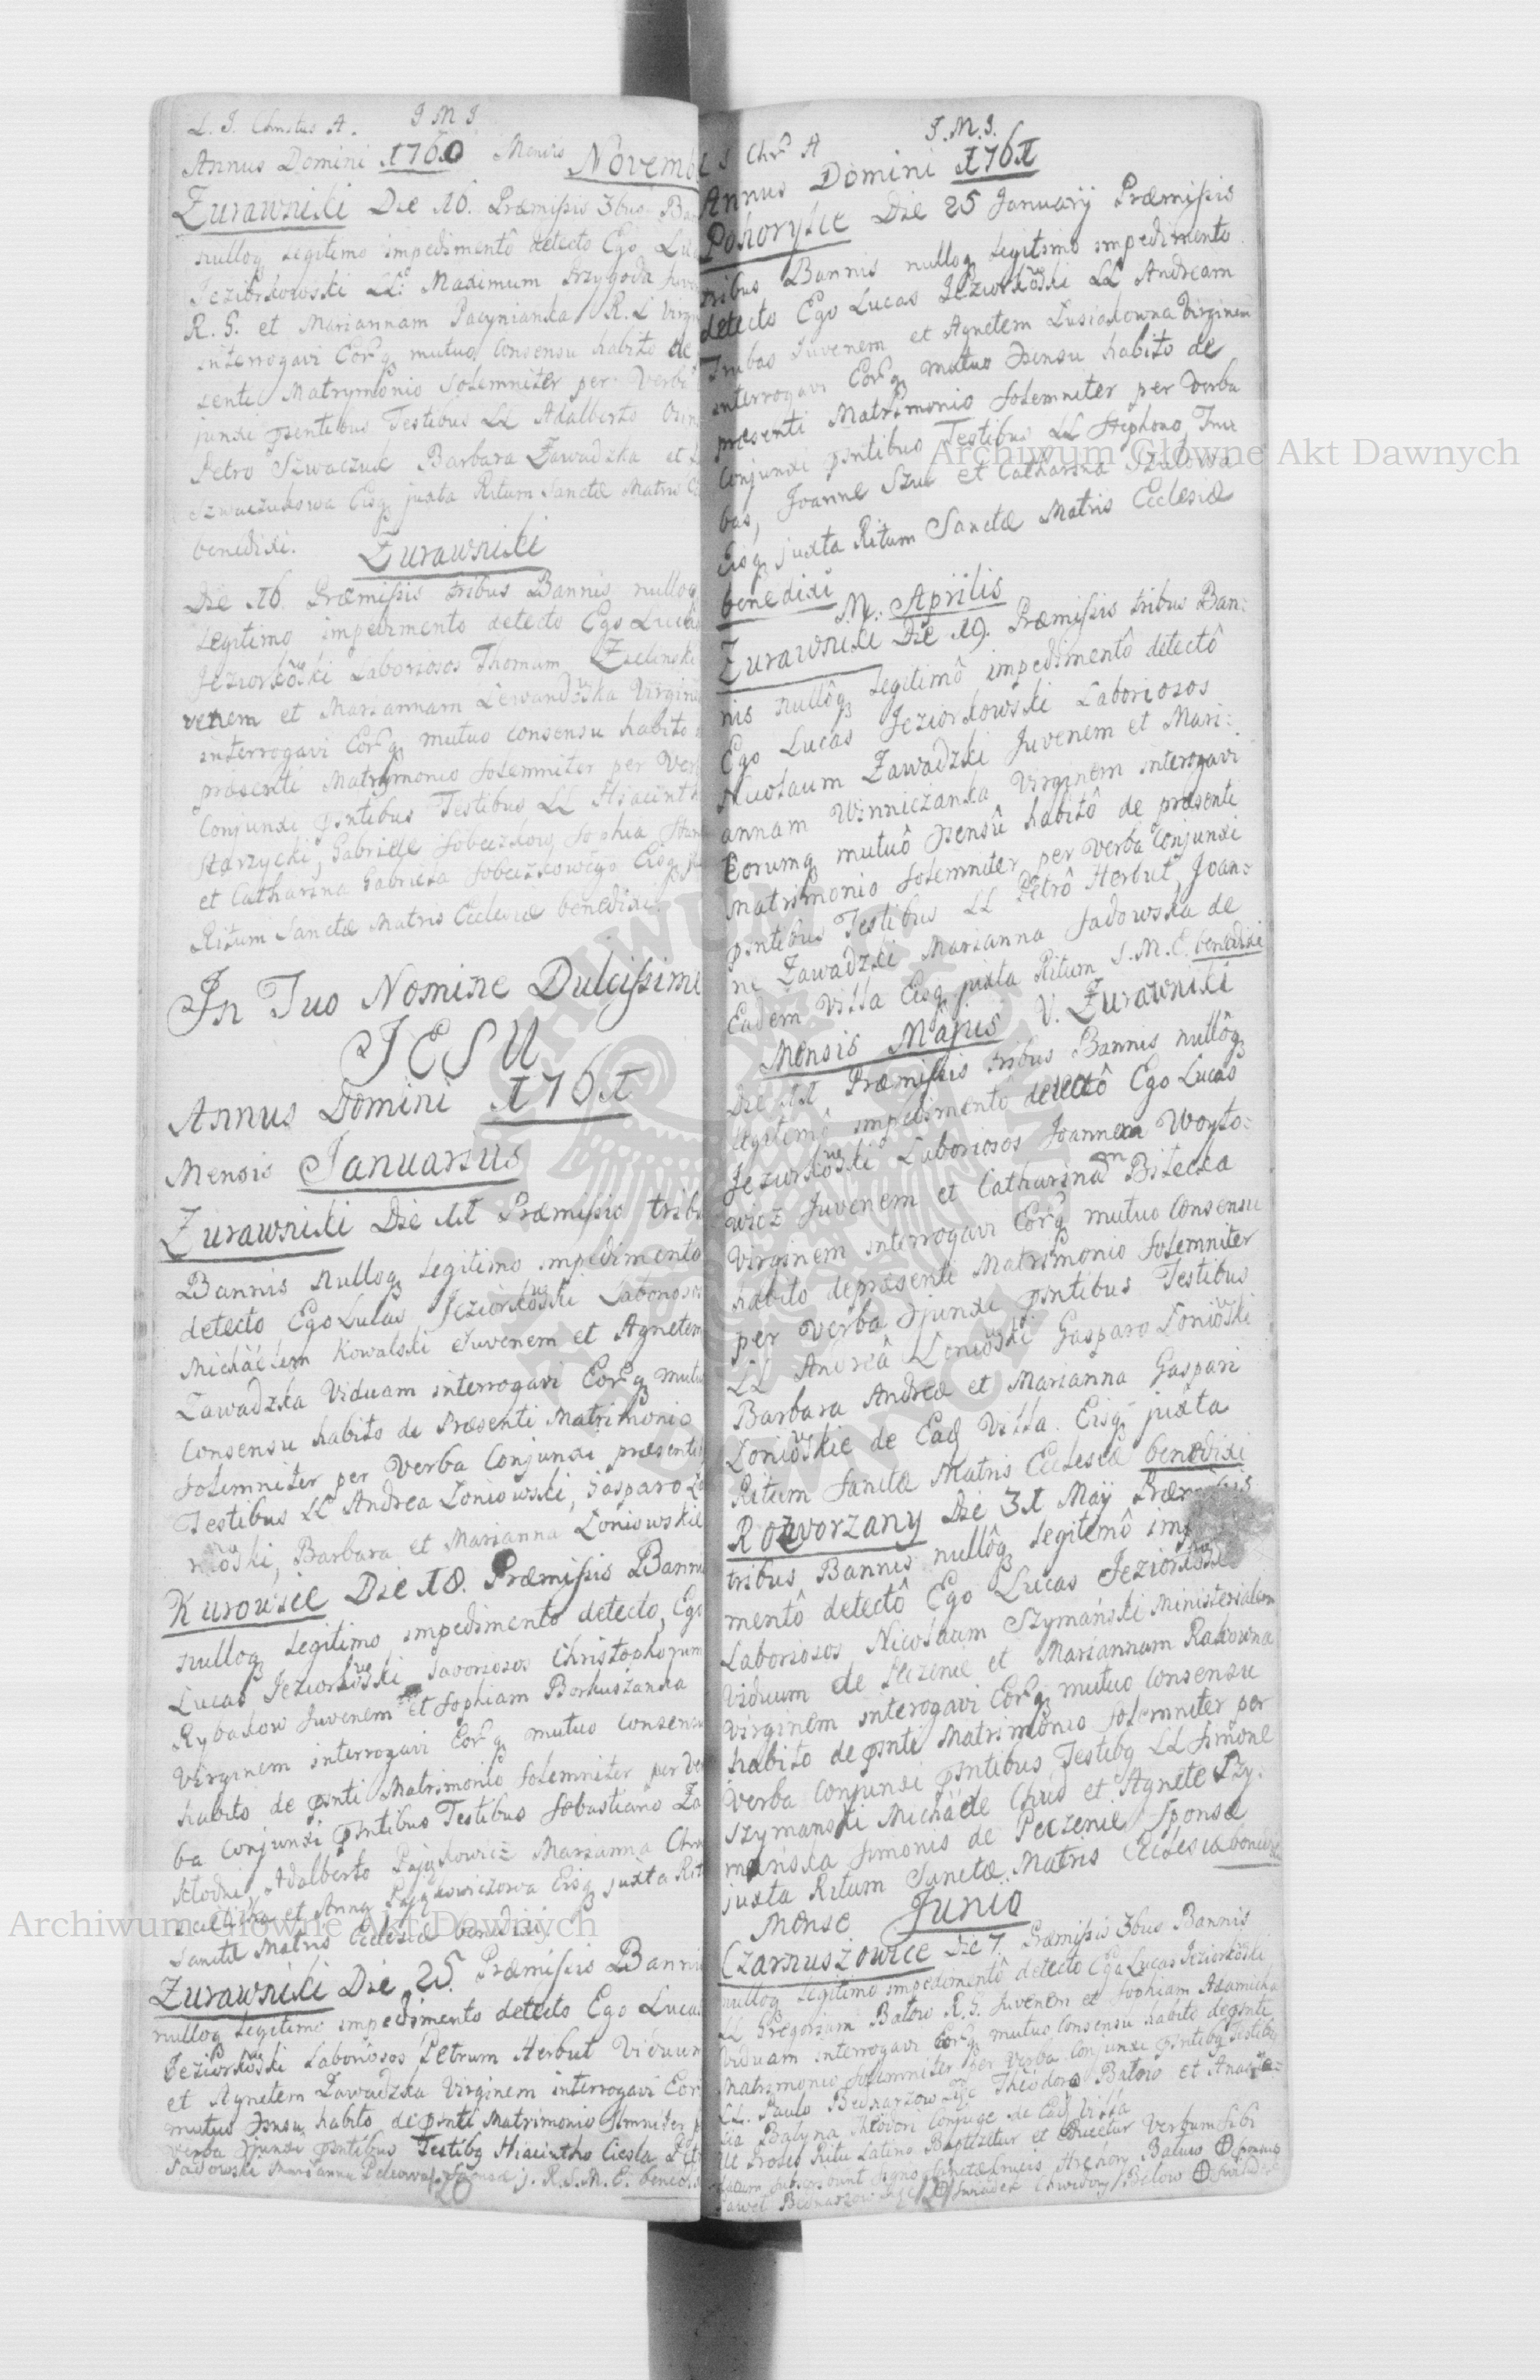 L. J. Christus A. J M J
Annus Domini 1760 Mensis Novemb
Zurawniki Die 16. Præmissis 3bus Ban
nulloq legitimo impedimentô detecto Ego Luc
Jeziorkowski LL: Maximum Przygoda Juve
R. G. et Mariannam Pacynianka R. L Virgi
interrogavi Eorq mutuo Consensu habito de
senti Matrymonio Solemniter per Verba
junxi psentibus Testibus LL Adalberto
Petro Szwaczuk Barbara Zawadzka et
Szwaczukowa Eisq juxta Ritum Sanctæ Matris
benedixi. Zurawniki
Die 16. Præmissis tribus Bannis nulloq
legitimo impedimento detecto Ego Lucas
Jeziorkowski Laboriosos Thomam Zielinski
venem et Mariannam Lewandowska Virgine
interrogavi Eorq mutuo consensu habito
præsenti Matrymonio solemniter per Ver
Conjunxi psntibus Testibus LL Hiacinth
Starzycki, Gabriele Sobczkow, Sophia
et Catharina Gabriela Sobczkowego Eisq
Ritum Sanctæ Matris Ecclesiæ benedixi.
In Tuo Nomine Dulcissime
JESU
Annus Domini 1761
Mensis Januarius
Zurawniki Die 11 Præmissis tribu
Bannis nulloq legitimo impedimento
detecto Ego Lucas Jeziorkowski Laboriosos
Michäelem Kowalski Juvenem et Agnetem
Zawadzka Viduam interrogavi Eorq mutu
Consensu habito de Præsenti Matrimonio
solemniter per Verba Conjunxi præsenti
Testibus LL Andrea Loniowski, Gasparo Lo
niowski, Barbara et Marianna Loniowskie
Kurowice Die 18. Præmissis Banni
nulloq legitimo impedimento detecto, Ego
Lucas Jeziorkowski Laboriosos Christophorum
Rybakow Juvenem et Sophiam Borkuszanka
Virginem interrogavi Eorq mutuo consensu
habito de psnti Matrimonio solemniter per Ver
ba Conjunxi psntibus Testibus Sebastiano
Adalberto Pajykowicz Marianna
et Anna Eisq juxta Rit
Sanctæ Matris Ecclesiæ benedixi
Zurawniki Die 25. Præmissis Banni
nulloq legitimo impedimento detecto Ego Lucas
Jeziorkowski Laboriosos Petrum Herbut Viduum
et Agnetem Zawadzka Virginem interrogavi Eor
mutuo habito de psnti Matrimonio
verba psntibus Testibq Hiacintho Ciesla
Sadowski Marianna J. R. S. M. E. bened
J Chrs A J. M. J.
Annus Domini 1761
Pohorylce Die 25 Januarij Præmissis
tribus Bannis nulloq legitimo impedimento
detecto Ego Lucas Jeziorkowski LL Andream
Trubas Juvenem et Agnetem Lusiakowna Virginem
interrogavi Eorq mutuo habito de
præsenti Matrimonio Solemniter per Verba
Conjunxi psntibus Testibus LL Stephano Tru
bas, Joanne Szul et Catharina Szulowa
Eisq juxta Ritum Sanctæ Matris Ecclesiæ
benedixi M: Aprilis
Zurawniki Die 19. Præmissis tribus Ban:
nis nullôq legitimô impedimentô detectô
Ego Lucas Jeziorkowski Laboriosos
Nicolaum Zawadzki Juvenem et Mari:
annam Winniczanka Virginem interogavi
Eorumq mutuô habitô de præsenti
matrimonio solemniter per verba Conjunxi
psntibus Testibus LL Petrô Herbut, Joan:
ne Zawadzki Marianna Sadowska de
Eadem Villa Eisq juxta Ritum S. M. E. benedixi
Mensis Majus V. Zurawniki
Die 11 Præmissis tribus Bannis nullôq
legitimô impedimentô detectô Ego Lucas
Jeziorkowski Laboriosos Joannem Woyto:
wicz Juvenem et Catharinam Bilecka
Virginem interrogavi Eorq mutuo Consensu
habito de præsenti Matrimonio Solemniter
per Verba psntibus Testibus
LL Andreâ Loniowski Gasparo Loniowski
Barbara Andreæ et Marianna Gaspari
Loniowskie de Eaq Villa. Eisq juxta
Ritum Sanctæ Matris Ecclesiæ benedixi
Rozworzany Die 31 Maij
tribus Bannis nullôq legitimô
mentô detectô Ego Lucas Jeziorkowski
Laboriosos Nicolaum Szymański Ministerialem
Viduum de Peczenie et Mariannam Rakowna
Virginem interogavi Eorq mutuo Consensu
habito de psnti Matrimonio Solemniter per
Verba Conjunxi psntibus Testibq LL Simone
Szymanski Michäele et Agnete Szy:
mańska Simonis de Peczenie Sponsa
juxta Ritum Sanctæ Matris Ecclesiæ benedixi
Mense Junio
Czarnuszowice Die 7. Præmissis 3bus Bannis
nulloq legitimo impedimentô detecto Ego Lucas Jeziorkowski
LL Gregorium Balow R. G. Juvenem et Sophiam Adamicka
Viduam interrogavi Eorq mutuo Consensu habito de psnti
Matrimonio Solemniter per Verba Conjunxi psntibq Testibq
LL. Paulo Bednarzow Theodoro Balow et
Conjuge de Eaq Villa
Proles Ritu Latino Baptizetur et
signo Sanctæ Crucis Hrehory Balow
Archiwum Główne Akt Dawnych
Archiwum Główne Akt Dawnych